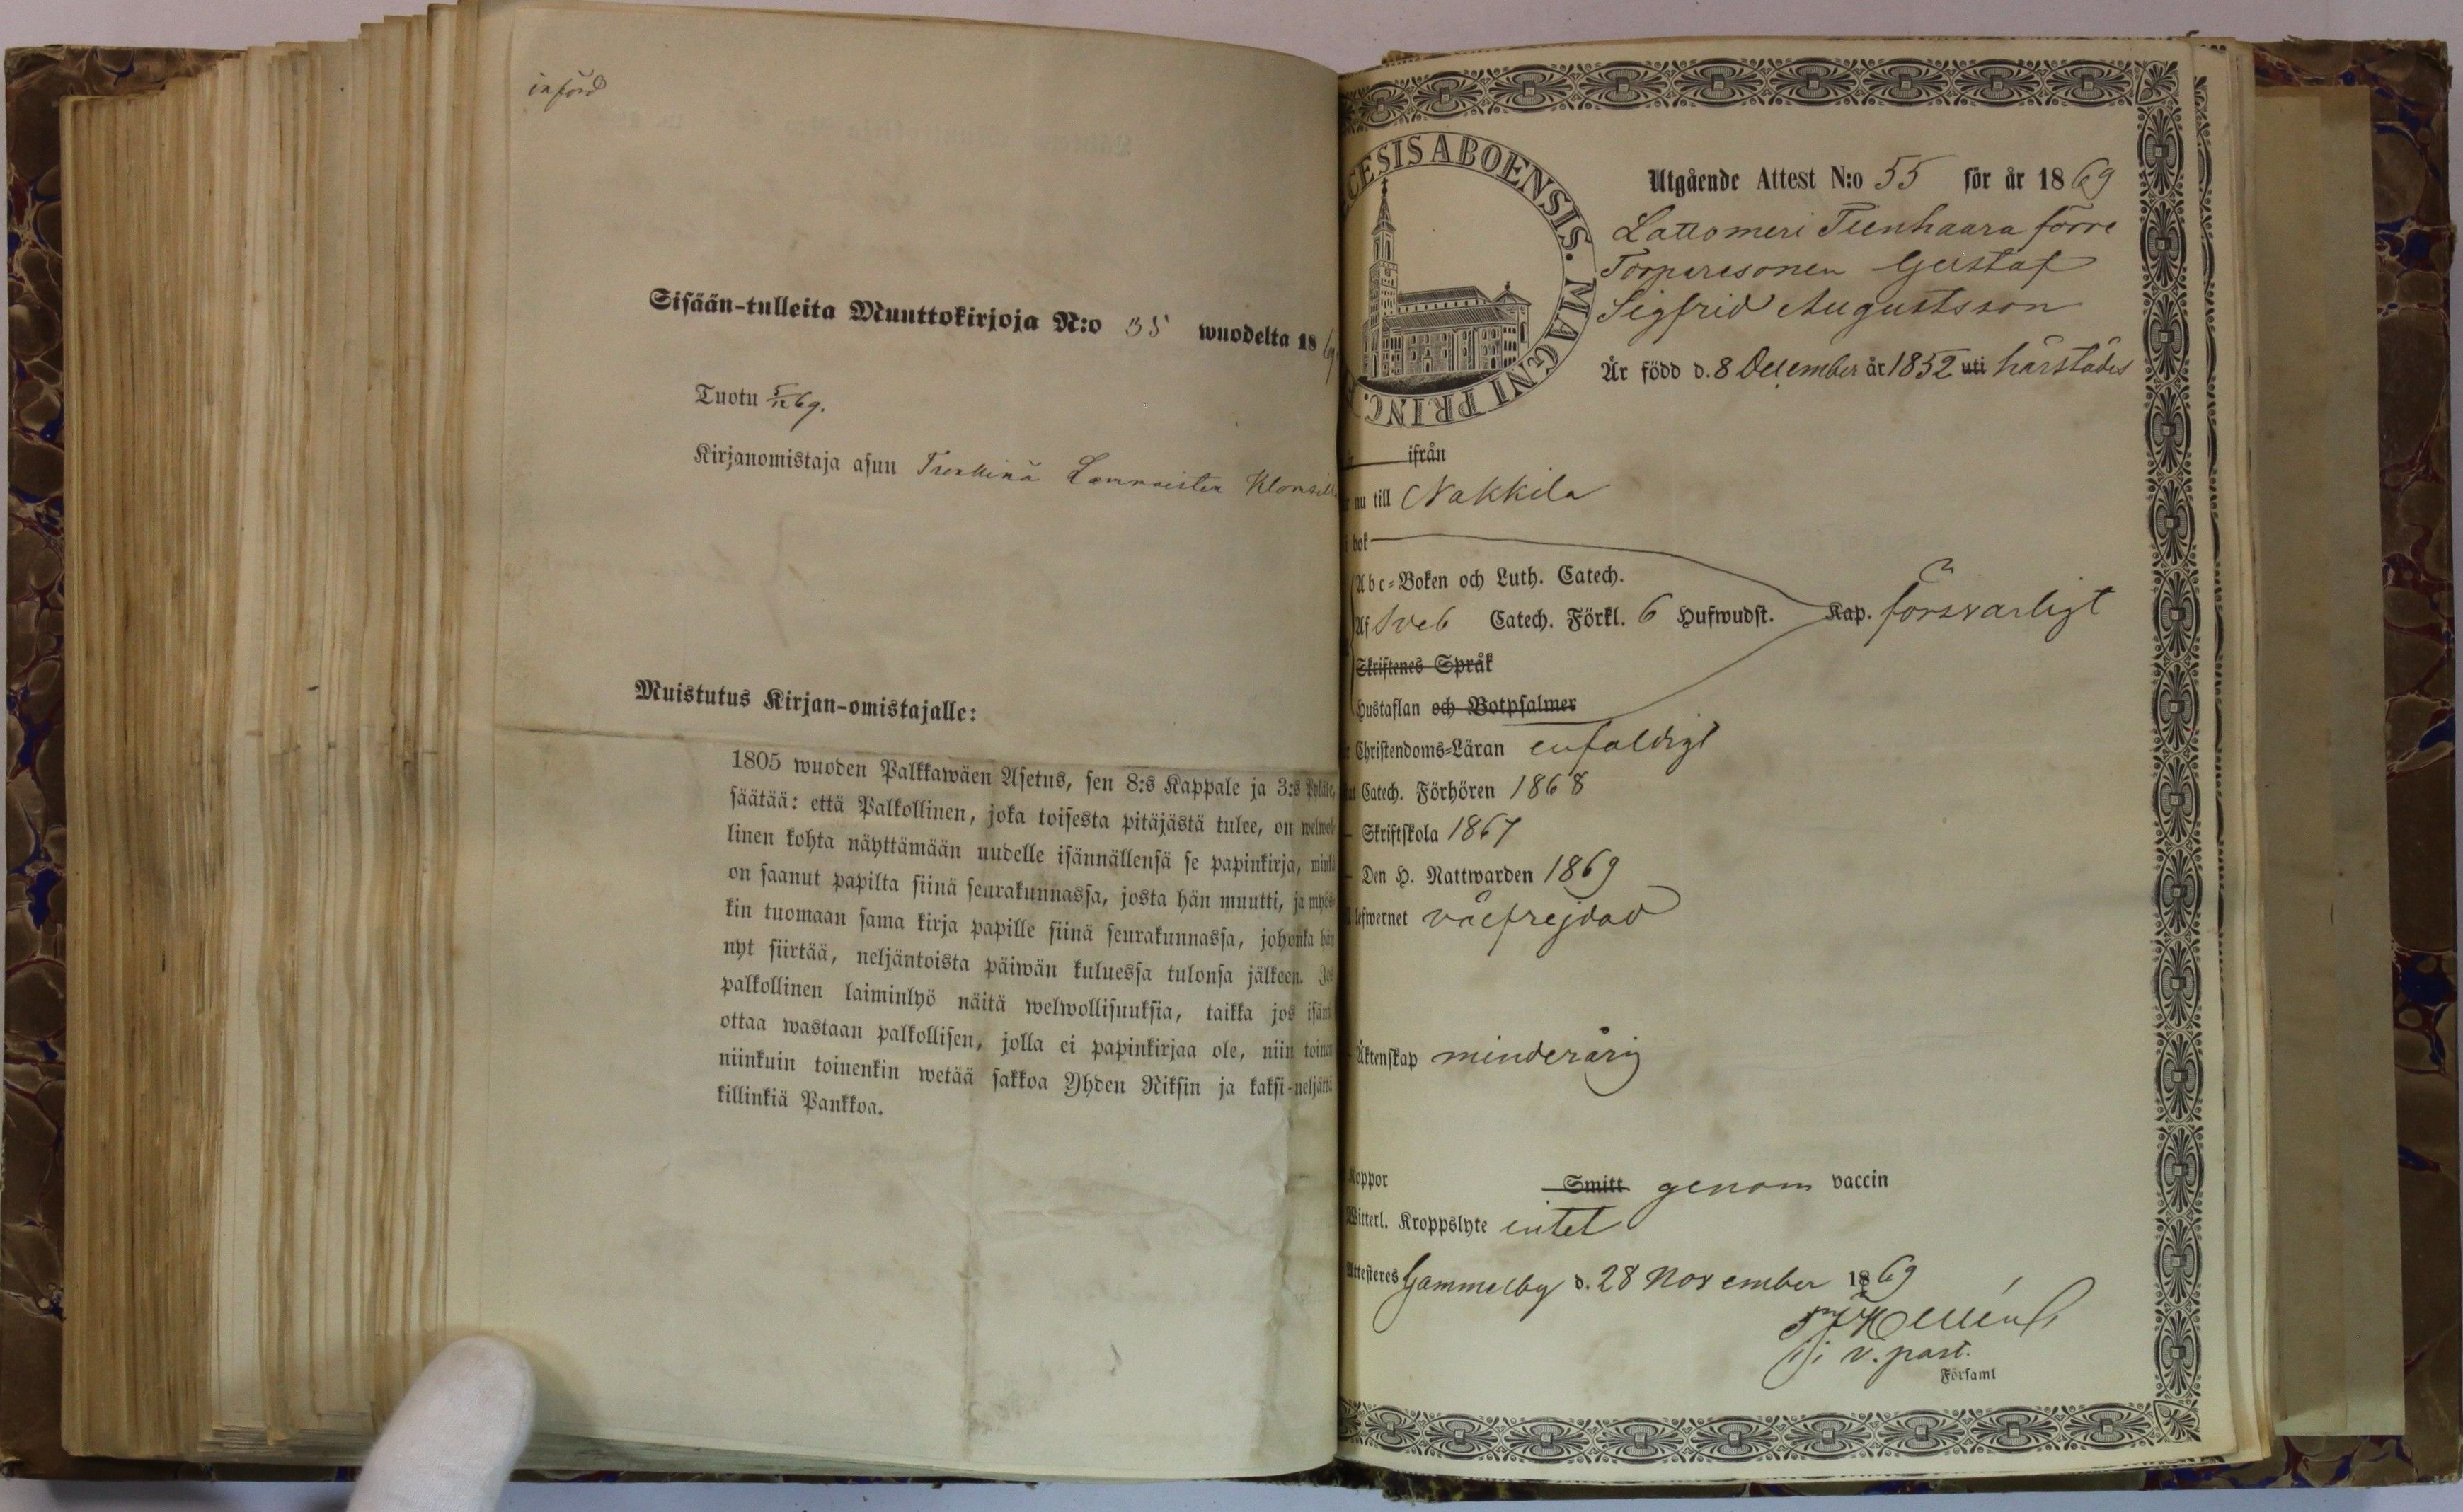 införd
Sisään-tulleita Muuttokirjoja N:o 35 wuodelta 1869
Tuotu 5/12 69.
Kirjanomistaja asuu
Muistutus Kirjan-omistajalle:
1805 wuoden Palkkawäen Asetus, sen 8:s Kappale ja 3:s
säätää: että Palkollinen, joka toisesta pitäjästä tulee, on welwol-
linen kohta näyttämään uudelle isännällensä se papinkirja, minkä
on saanut papilta siinä seurakunnassa, josta hän muutti, ja myös-
kin tuomaan sama kirja papille siinä seurakunnassa, johonka hän
nyt siirtää, neljäntoista päiwän kuluessa tulonsa jälkeen. Jos
palkollinen laiminlyö näitä welwollisuuksia, taikka jos isäntä
ottaa wastaan palkollisen, jolla ei papinkirjaa ole, niin toinen
niinkuin toinenkin wetää sakkoa Yhden Riksin ja kaksi-neljättä
killinkiä Pankkoa.
CESIS ABOENSIS. MAGNI PRINC.
Utgående Attest N:o 55 för år 1869
Lattomeri Tienhaara förre
Torparesonen Gustaf
Sigfrid Augustsson
Är född d. 8 December år 1852 uti härstädes
ifrån
nu till Nakkila
bok
Abc-Boken och Luth. Catech.
Af Sveb Catech. Förkl. 6 Hufwudst. Kap. försvarligt
Skriftenes Språk
Hustaflan och Botpsalmer
Christendoms-Läran enfaldigt
Catech. Förhören 1868
Skriftskola 1867
Den H. Nattwarden 1869
lefwernet välfrejdad
Äktenskap minderårig
Koppor Smitt genom vaccin
Witterl. Kroppslyte intet
Attesteres Gammelby d. 28 November 1869
v. past.
Församl